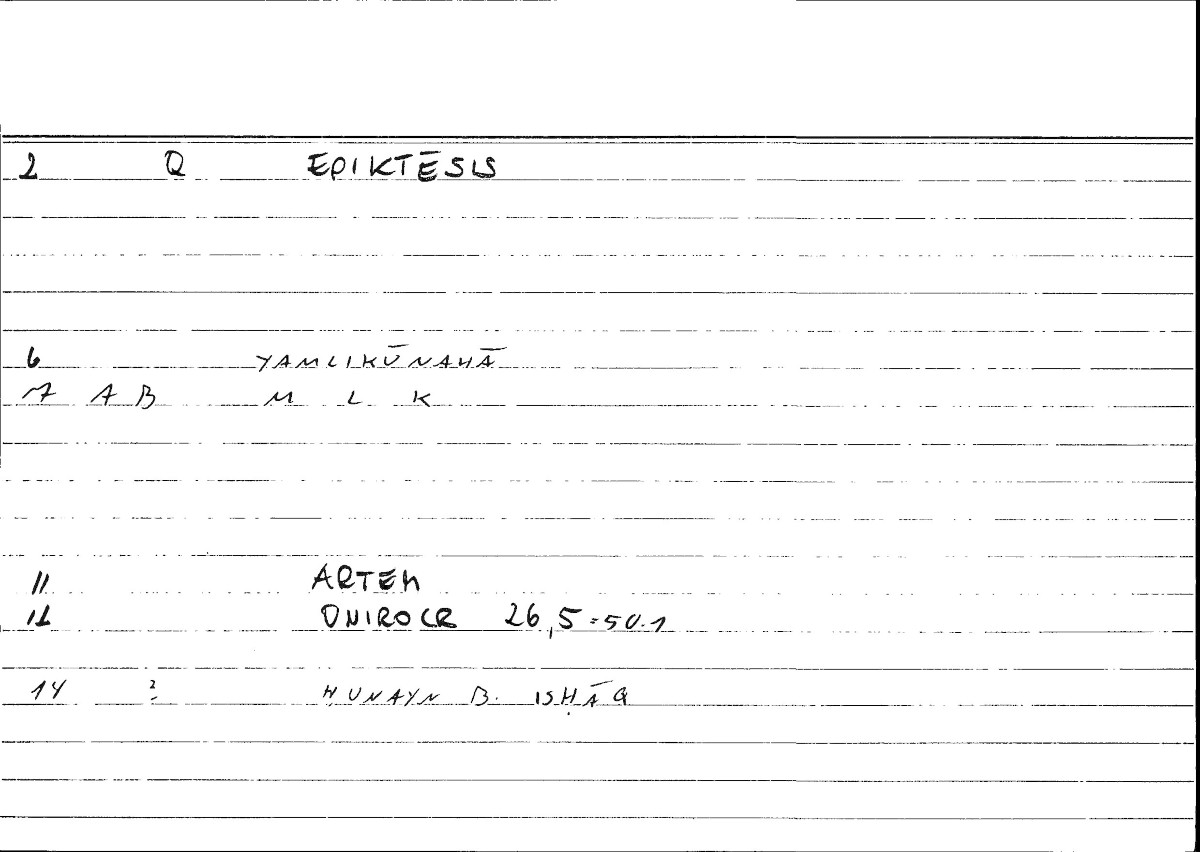 2 Q EPIKTĒSIS
6 YAMLIKŪNAHĀ
7 AB M L K
11 ARTEM
12 ONIROCR 26,5=50.1
14 2 ḤUNAYN B. ISḤĀQ